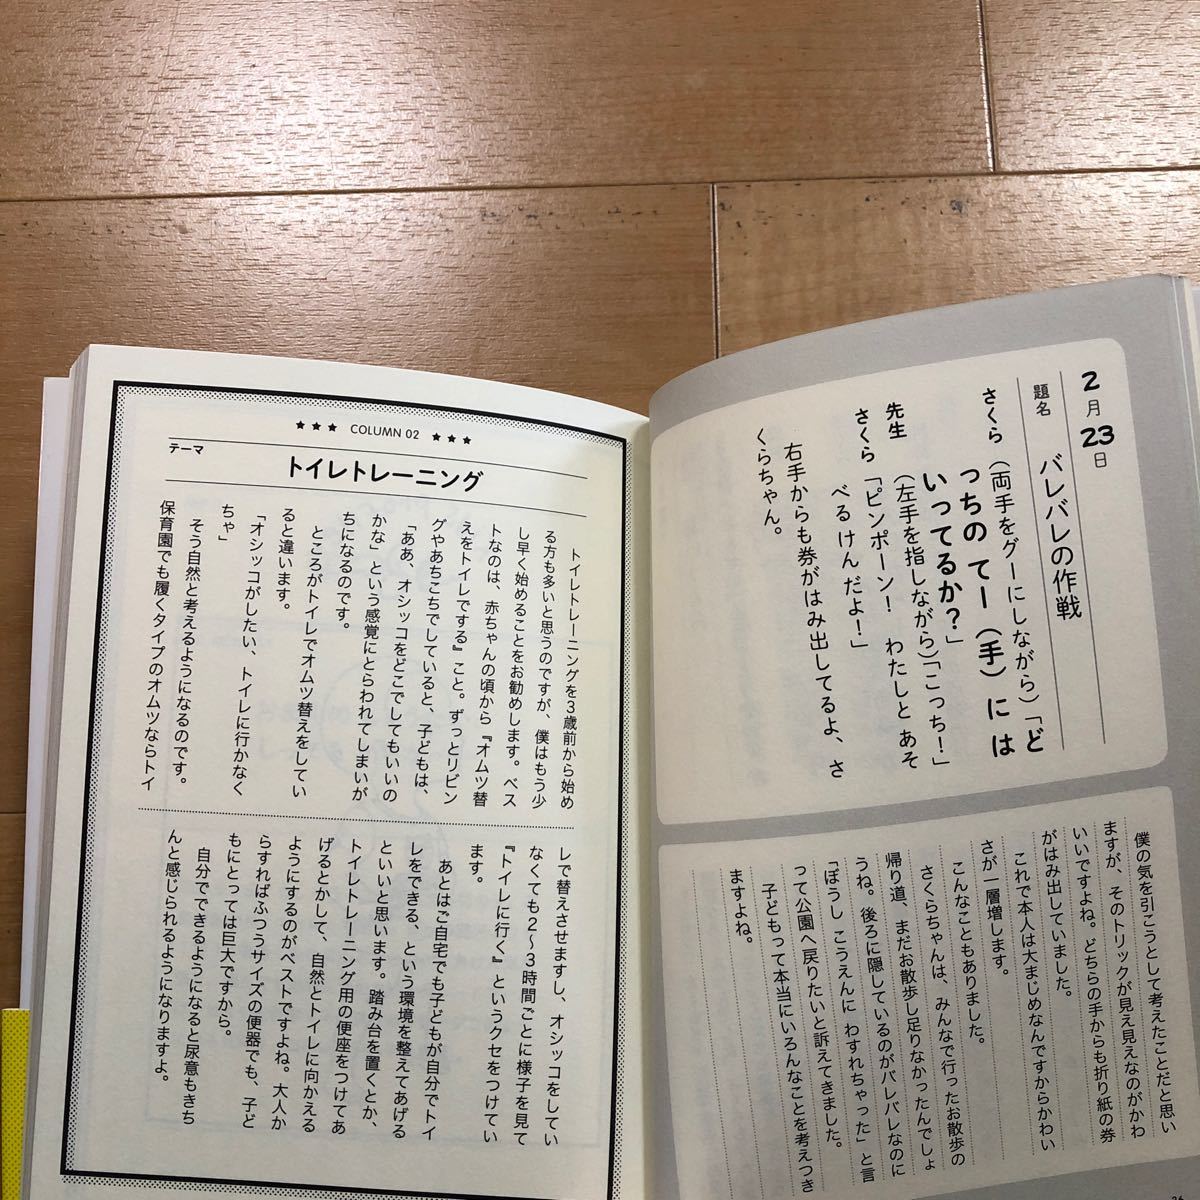 2月23日
題名 バレバレの作戦
さくら (両手をグーにしながら)「ど
っちの てー(手)には
いってるか?」
先生 (左手を指しながら)「こっち!」
さくら 「ピンポーン! わたしと あそ
べる けん だよ!」
右手からも券がはみ出してるよ、さ
くらちゃん。
僕の気を引こうとして考えたことだと思い
ますが、そのトリックが見え見えなのがかわ
いいですよね。どちらの手からも折り紙の券
がはみ出していました。
これで本人は大まじめなんですからかわい
さが一層増します。
こんなこともありました。
さくらちゃんは、みんなで行ったお散歩の
帰り道、まだお散歩し足りなかったんでしょ
うね。後ろに隠しているのがバレバレなのに
「ぼうし こうえんに わすれちゃった」と言
って公園へ戻りたいと訴えてきました。
子どもって本当にいろんなことを考えつき
ますよね。
★★★ COLUMN 02 ★★★
テーマ
トイレトレーニング
トイレトレーニングを3歳前から始め
る方も多いと思うのですが、僕はもう少
し早く始めることをお勧めします。ベス
トなのは、赤ちゃんの頃から『オムツ替
えをトイレでする』こと。ずっとリビン
グやあちこちでしていると、子どもは、
「ああ、オシッコをどこでしてもいいの
かな」という感覚にとらわれてしまいが
ちになるのです。
ところがトイレでオムツ替えをしてい
ると違います。
「オシッコがしたい、トイレに行かなく
ちゃ」
そう自然と考えるようになるのです。
保育園でも履くタイプのオムツならトイ
レで替えさせますし、オシッコをしてい
なくても2〜3時間ごとに様子を見て
『トイレに行く』というクセをつけてい
ます。
あとはご自宅でも子どもが自分でトイ
レをできる、という環境を整えてあげる
といいと思います。踏み台を置くとか、
トイレトレーニング用の便座をつけてあ
げるとかして、自然とトイレに向かえる
ようにするのがベストですよね。大人か
らすればふつうサイズの便器でも、子ど
もにとっては巨大ですから。
自分でできるようになると尿意もきち
んと感じられるようになりますよ。